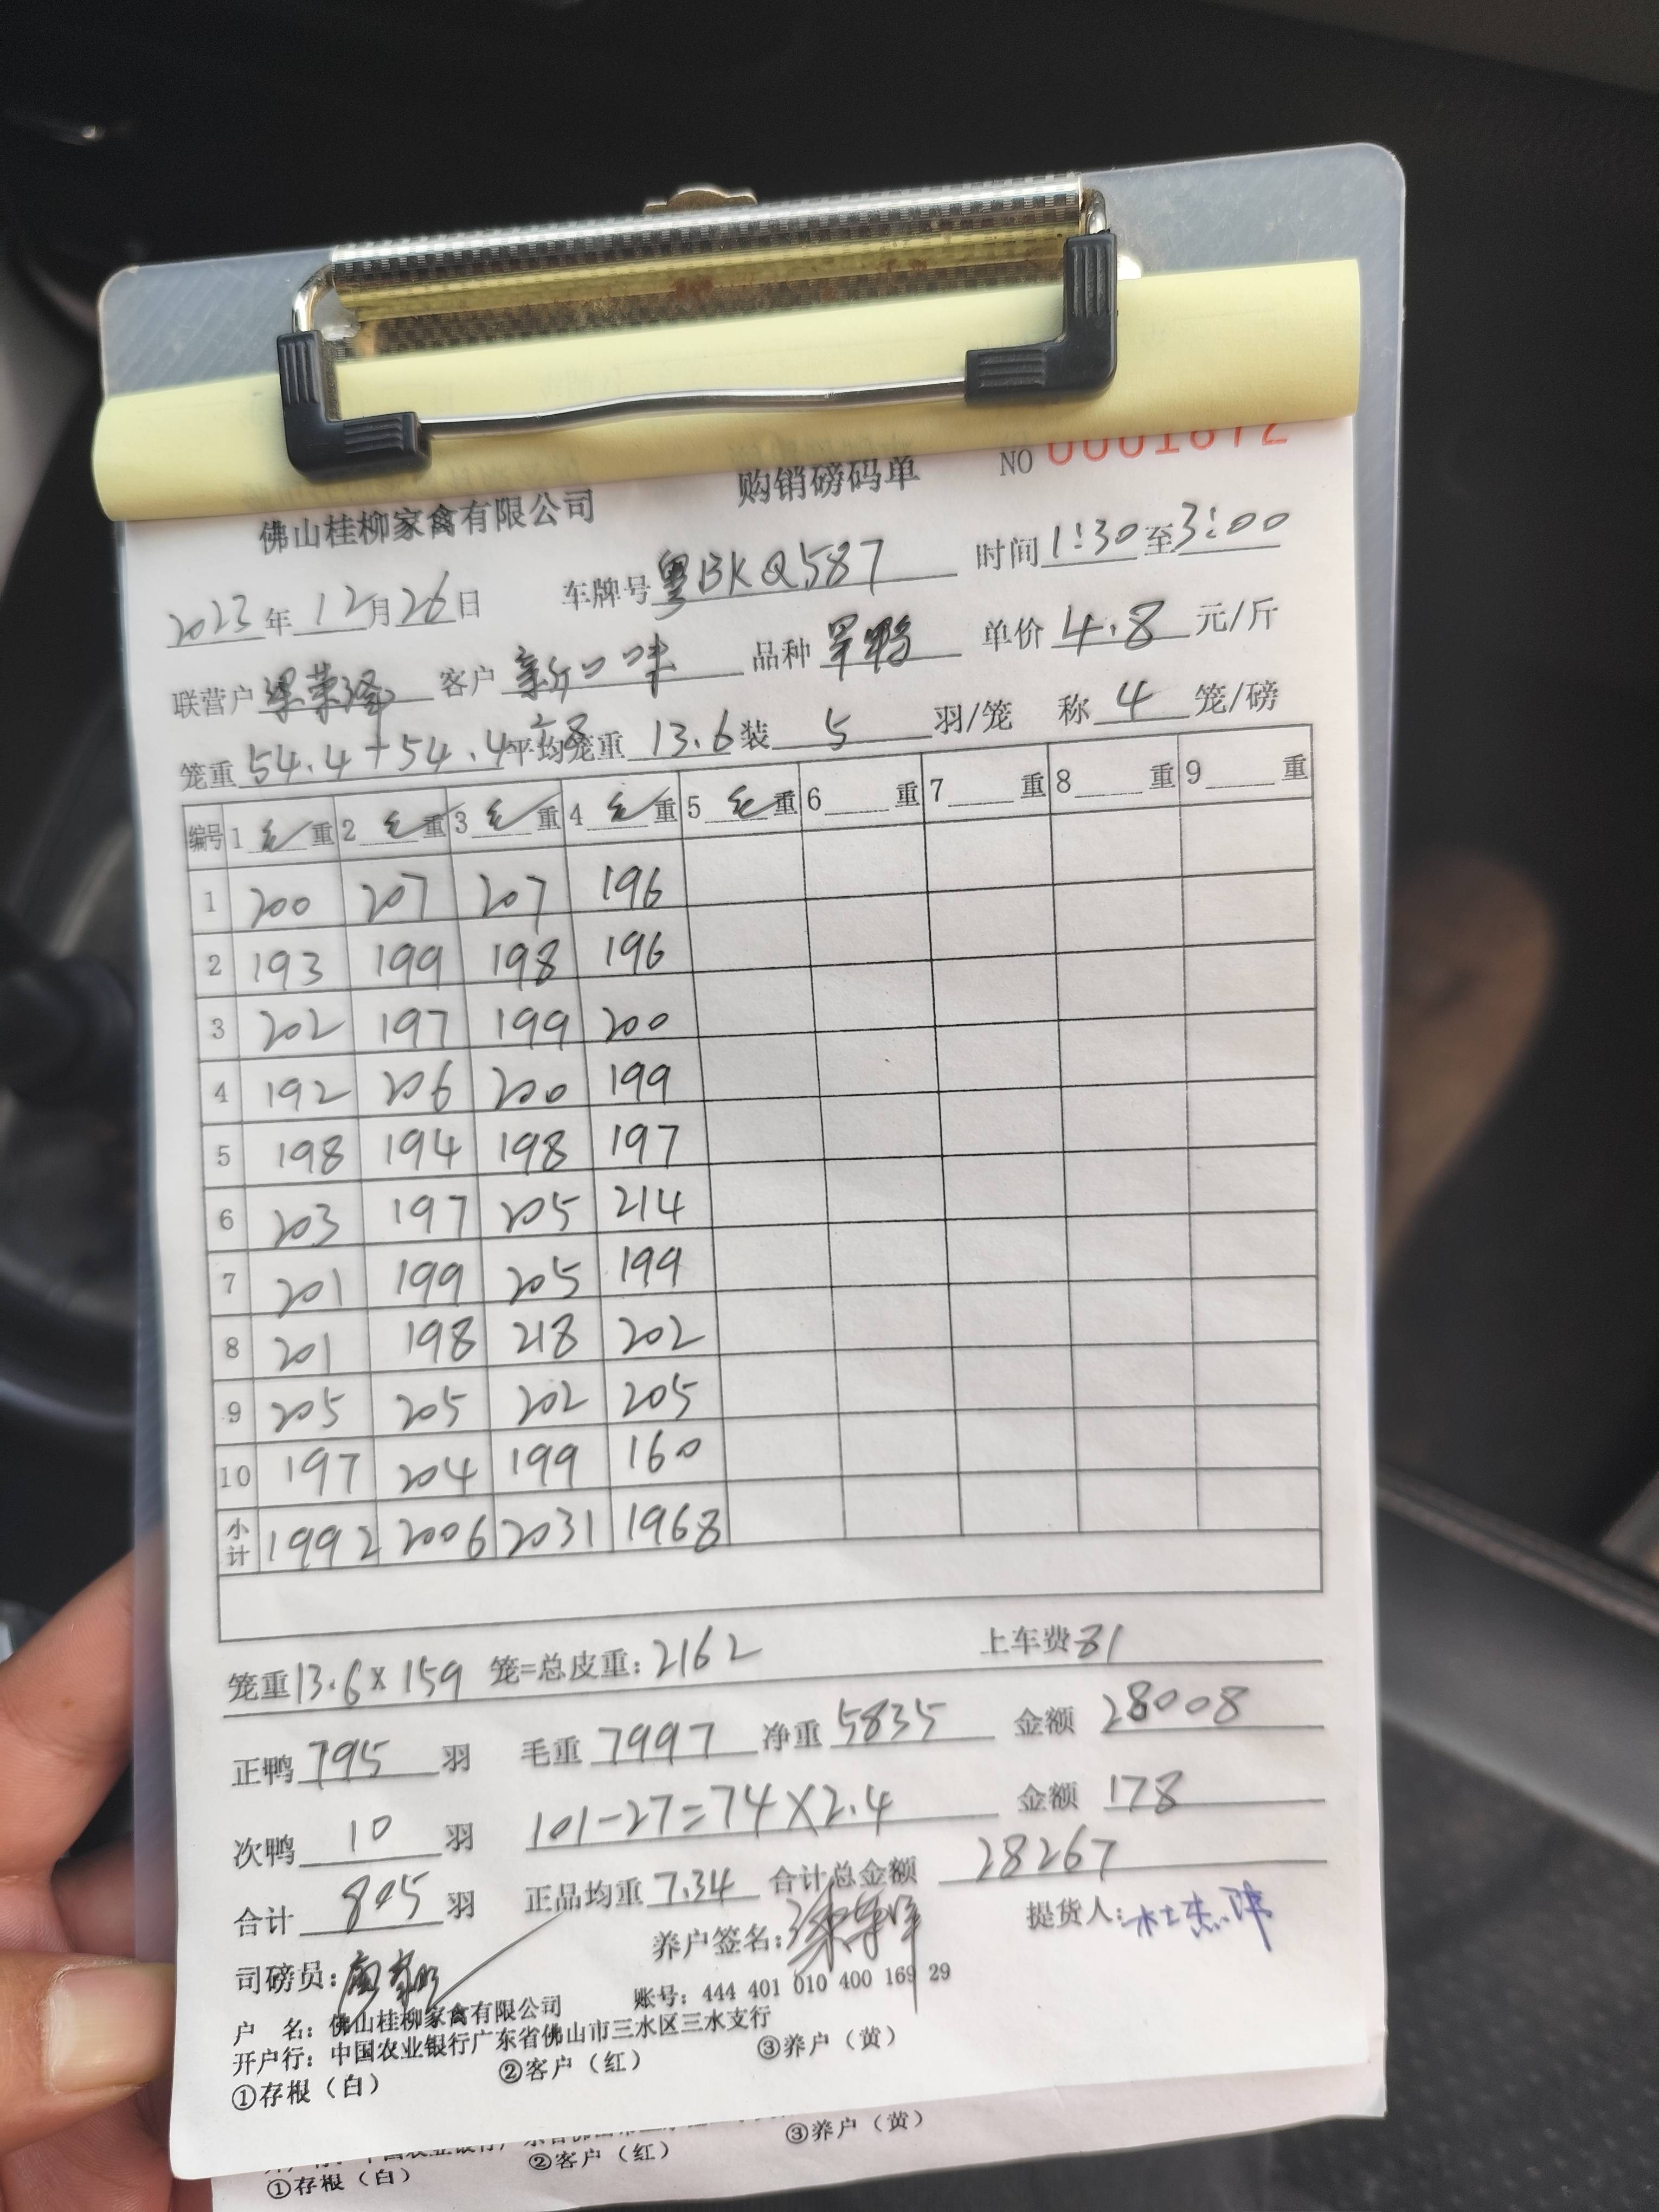 购销磅码单 NO 0001672
佛山桂柳家禽有限公司
2023年12月26日 车牌号粤BKQ587 时间1:30至3:00
联营户梁荣泽 客户新口味 品种 单价4.8元/斤
笼重54.4+54.4 平均笼重13.6装5羽/笼 称4笼/磅
编号 1毛重 2毛重 3毛重 4毛重 5毛重 6重 7重 8重 9重
1 200 207 207 196
2 193 199 198 196
3 202 197 199 200
4 192 206 200 199
5 198 194 198 197
6 203 197 205 214
7 201 199 205 199
8 201 198 218 202
9 205 205 202 205
10 197 204 199 160
小计 1992 2006 2031 1968
笼重13.6×159笼=总皮重:2162 上车费81
正鸭795羽 毛重7997 净重5835 金额28008
次鸭10羽 101-27=74×2.4 金额178
合计805羽 正品均重7.34 合计总金额28267
司磅员: 养户签名: 提货人:
户 名:佛山桂柳家禽有限公司 账号:444 401 010 400 169 29
开户行:中国农业银行广东省佛山市三水区三水支行
①存根(白) ②客户(红) ③养户(黄)
①存根(白) ②客户(红) ③养户(黄)